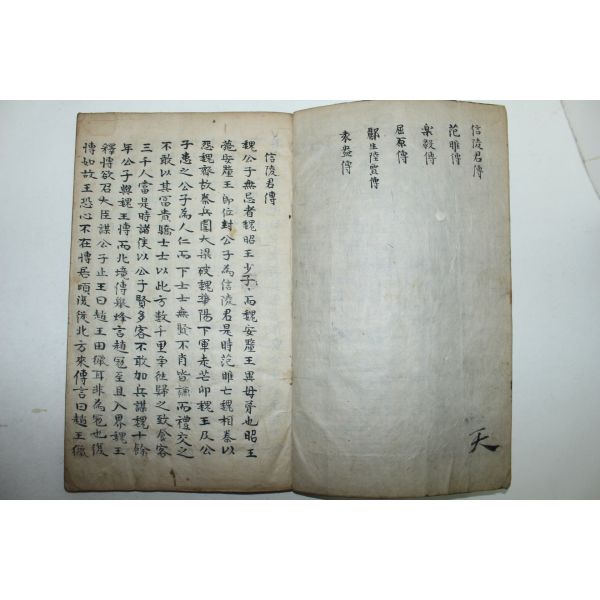 信陵君傳
范雎傳
樂毅傳
屈原傳
酈生陸賈傳
袁盎傳
天
信陵君傳
魏公子無忌者魏昭王少子而魏安釐王異母弟也昭王
薨安釐王即位封公子為信陵君是時范雎亡魏相秦以
怨魏齊故秦兵圍大梁破魏華陽下軍走芒卯魏王及公
子患之公子為人仁而下士士無賢不肖皆謙而禮交之
不敢以其富貴驕士士以此方數千里爭往歸之致食客
三千人當是時諸侯以公子賢多客不敢加兵謀魏十餘
年公子與魏王博而北境傳舉烽言趙寇至且入界魏王
釋博欲召大臣謀公子止王曰趙王田獵耳非為寇也復
博如故王恐心不在博居頃復從北方來傳言曰趙王獵